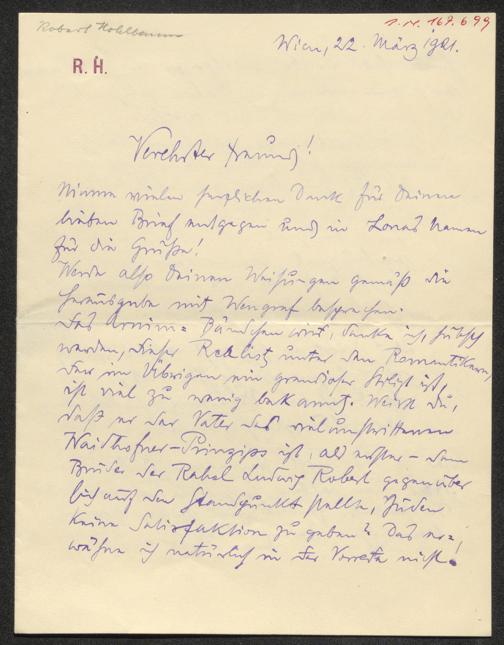 Robert Hohlbaum
I.N. 167.699
Wien, 22. März 1921.
R. H.
Verehrter Freund!
Nimm vielen herzlichen Dank für Deinen
lieben Brief entgegen und in Lonas Namen
für die Grüße!
Werde also Deinen Weisungen gemäß die
Herausgabe mit Wengraf besprechen.
Das Arnim-Bändchen wird, denke ich, hübsch
werden, dieser Realist unter den Romantikern,
der im Übrigen ein grandioser Stilist ist,
ist viel zu wenig bekannt. Weißt Du,
daß er der Vater des vielumstrittenen
Waidhofner-Prinzips ist, als erster - dem
Bruder der Rahel Ludwig Robert gegenüber
sich auf den Standpunkt stellte, Juden
keine Satisfaktion zu geben? Das er=
wähne ich natürlich in der Vorrede nicht!